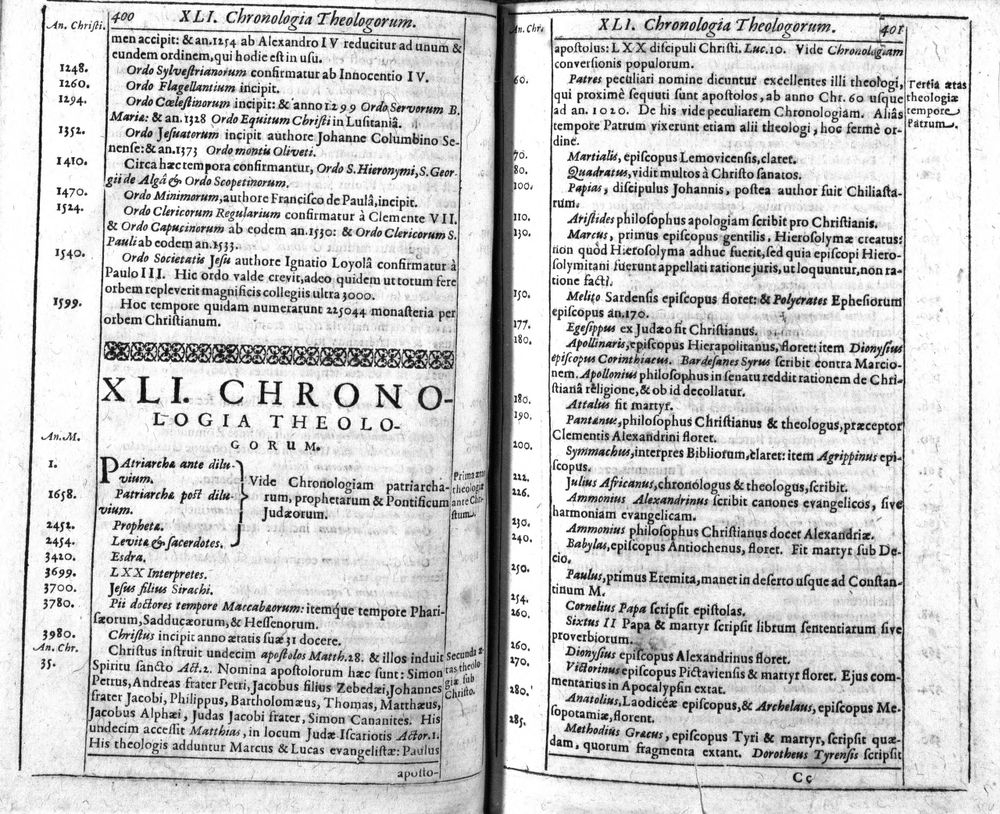 An. Christi. 400 XLI. Chronologia Theologorum.
men accipit: & an. 1254 ab Alexandro IV reducitur ad unum &
eundem ordinem, qui hodie est in usu.
1248. Ordo Sylvestrianorum confirmatur ab Innocentio IV.
1260. Ordo Flagellantium incipit.
1294. Ordo Cœlestinorum incipit: & anno 1299 Ordo Servorum B.
Mariæ: & an. 1328 Ordo Equitum Christi in Lusitaniâ.
1352. Ordo Jesuatorum incipit authore Johanne Columbino Se-
nense: & an. 1373 Ordo montis Oliveti.
1410. Circa hæc tempora confirmantur, Ordo S. Hieronymi, S. Geor-
gii de Algâ & Ordo Scopetinorum.
1470. Ordo Minimorum, authore Francisco de Paulâ, incipit.
1524. Ordo Clericorum Regularium confirmatur à Clemente VII.
& Ordo Capucinorum ab eodem an. 1530: & Ordo Clericorum S.
Pauli ab eodem an. 1533.
1540. Ordo Societatis Jesu authore Ignatio Loyolâ confirmatur à
Paulo III. Hic ordo valde crevit, adeo quidem ut totum fere
orbem repleverit magnificis collegiis ultra 3000.
1599. Hoc tempore quidam numerarunt 225044 monasteria per
orbem Christianum.
XLI. CHRONO-
LOGIA THEOLO-
GORUM.
An. M.
1. PAtriarchæ ante dilu-
vium.
1658. Patriarchæ post dilu-
vium.
2452. Prophetæ.
2454. Levitæ & sacerdotes.
Vide Chronologiam patriarcha-
rum, prophetarum & Pontificum
Judæorum.
Prima ætas
theologiæ
ante Chri-
stum.
3420. Esdra.
3699. LXX Interpretes.
3700. Jesus filius Sirachi.
3780. Pii doctores tempore Maccabæorum: itemque tempore Phari-
sæorum, Sadducæorum, & Hessenorum.
3980. Christus incipit anno ætatis suæ 31 docere.
An. Chr.
35. Christus instruit undecim apostolos Matth. 28. & illos induit
Spiritu sancto Act. 2. Nomina apostolorum hæc sunt: Simon
Petrus, Andreas frater Petri, Jacobus filius Zebedæi, Johannes
frater Jacobi, Philippus, Bartholomæus, Thomas, Matthæus,
Jacobus Alphæi, Judas Jacobi frater, Simon Cananites. His
undecim accessit Matthias, in locum Judæ Iscariotis Actor. 1.
His theologis adduntur Marcus & Lucas evangelistæ: Paulus
Secunda æ-
tas theolo
giæ sub
Christo.
aposto-
An. Chr. XLI. Chronologia Theologorum. 401
apostolus: LXX discipuli Christi. Luc. 10. Vide Chronologiam
conversionis populorum.
60. Patres peculiari nomine dicuntur excellentes illi theologi,
qui proximè sequuti sunt apostolos, ab anno Chr. 60 usque
ad an. 1020. De his vide peculiarem Chronologiam. Aliàs
tempore Patrum vixerunt etiam alii theologi, hoc fermè or-
dine.
Tertia ætas
theologiæ
tempore
Patrum.
70. Martialis, episcopus Lemovicensis, claret.
80. Quadratus, vidit multos à Christo sanatos.
100. Papias, discipulus Johannis, postea author fuit Chiliasta-
rum.
110. Aristides philosophus apologiam scribit pro Christianis.
130. Marcus, primus episcopus gentilis, Hierosolymæ creatus:
non quòd Hierosolyma adhuc fuerit, sed quia episcopi Hiero-
solymitani fuerunt appellati ratione juris, ut loquuntur, non ra-
tione facti.
150. Melito Sardensis episcopus floret: & Polycrates Ephesiorum
episcopus an. 170.
177. Egesippus ex Judæo fit Christianus.
180. Apollinaris, episcopus Hierapolitanus, floret: item Dionysius
episcopus Corinthiacus. Bardesanes Syrus scribit contra Marcio-
nem. Apollonius philosophus in senatu reddit rationem de Chri-
stianâ religione, & ob id decollatur.
180. Attalus fit martyr.
190. Pantænus, philosophus Christianus & theologus, præceptor
Clementis Alexandrini floret.
200. Symmachus, interpres Bibliorum, claret: item Agrippinus epi-
scopus.
222. Julius Africanus, chronologus & theologus, scribit.
226. Ammonius Alexandrinus scribit canones evangelicos, sive
harmoniam evangelicam.
230. Ammonius philosophus Christianus docet Alexandriæ.
240. Babylas, episcopus Antiochenus, floret. Fit martyr sub De-
cio.
250. Paulus, primus Eremita, manet in deserto usque ad Constan-
tinum M.
254. Cornelius Papa scripsit epistolas.
260. Sixtus II Papa & martyr scripsit librum sententiarum sive
proverbiorum.
260. Dionysius episcopus Alexandrinus floret.
270. Victorinus episcopus Pictaviensis & martyr floret. Ejus com-
mentarius in Apocalypsin extat.
280. Anatolius, Laodiceæ episcopus, & Archelaus, episcopus Me-
sopotamiæ, florent.
285. Methodius Græcus, episcopus Tyri & martyr, scripsit quæ-
dam, quorum fragmenta extant. Dorotheus Tyrensis scripsit
Cc